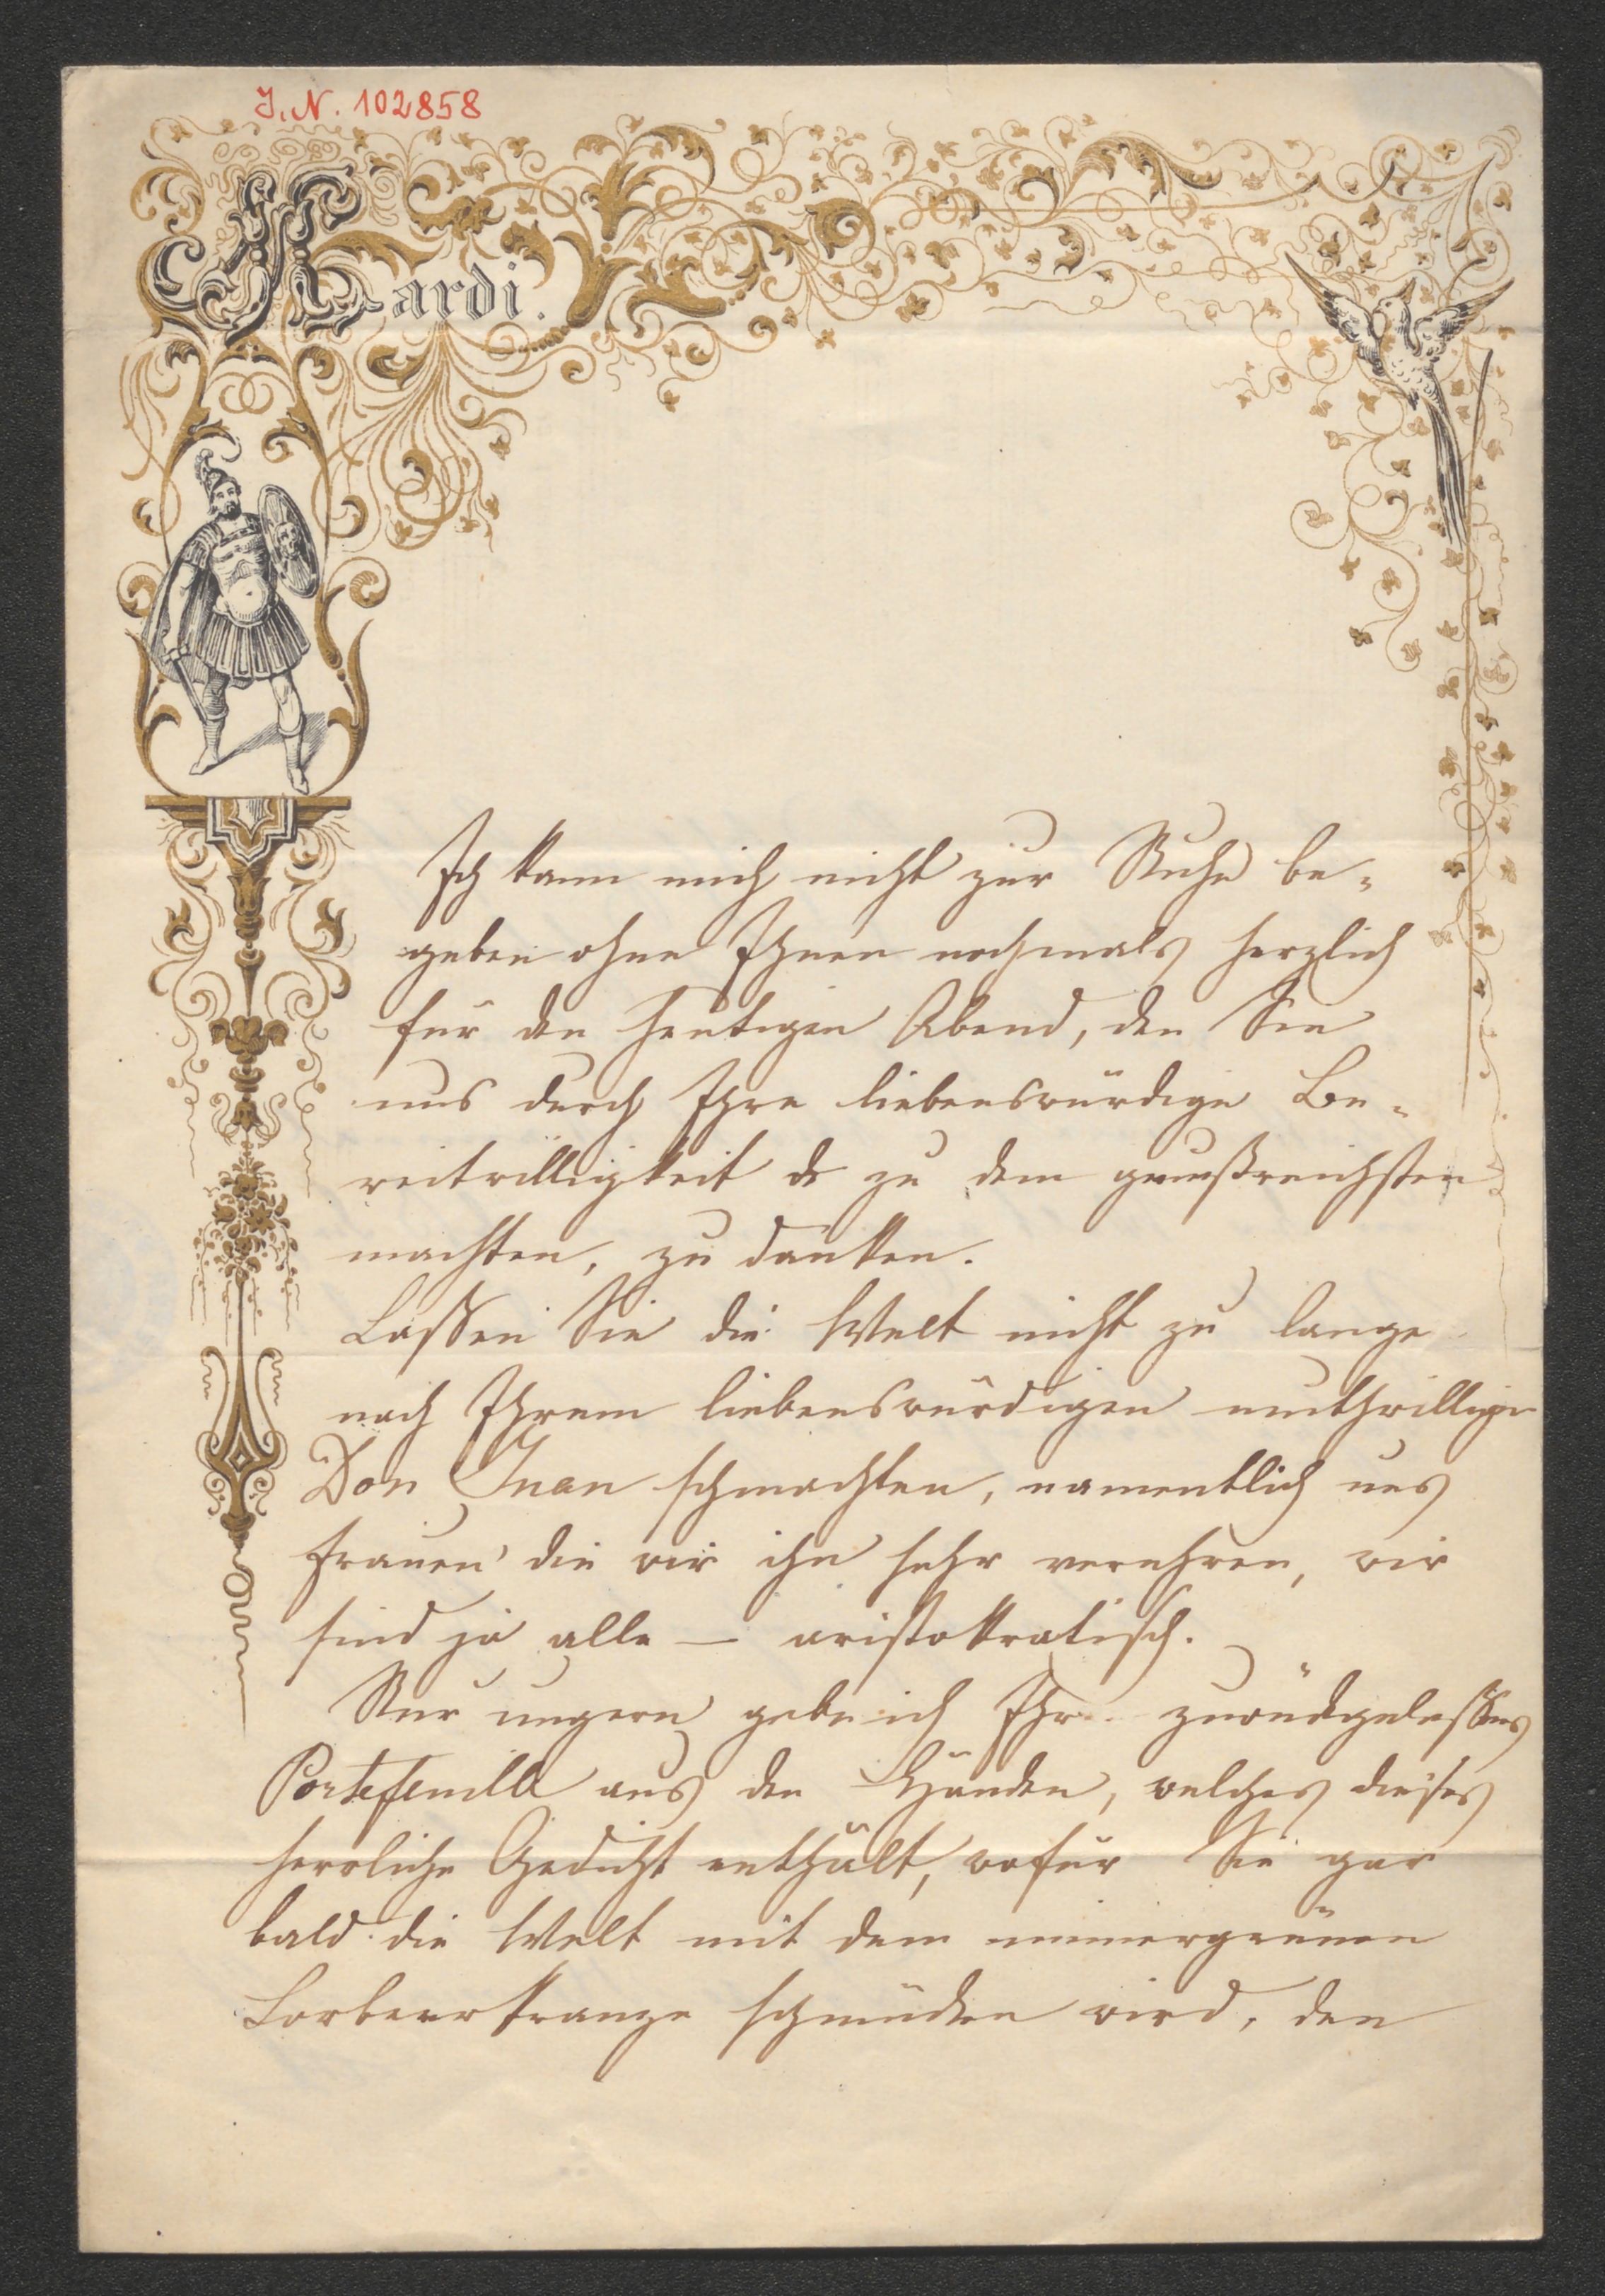 J. N. 102858
Mardi.
Ich kann mich nicht zur Ruhe be-
geben ohne Ihnen nochmals herzlich
für den heutigen Abend, den Sie
uns durch Ihre liebenswürdige Be-
reitwilligkeit zu dem genußreichsten
machten, zu danken.
Lassen Sie die Welt nicht zu lange
nach Ihrem liebenswürdigen muthwilligen
Don Juan schmachten, namentlich uns
Frauen die wir ihn sehr verehren, wir
sind ja alle — aristokratisch.
Nur ungern gebe ich Ihr zurückgelassenes
Portefeuille aus den Händen, welches dieses
herrliche Gedicht enthält, wofür Sie gar
bald die Welt mit dem immergrünen
Lorbeerkranze schmücken wird, den